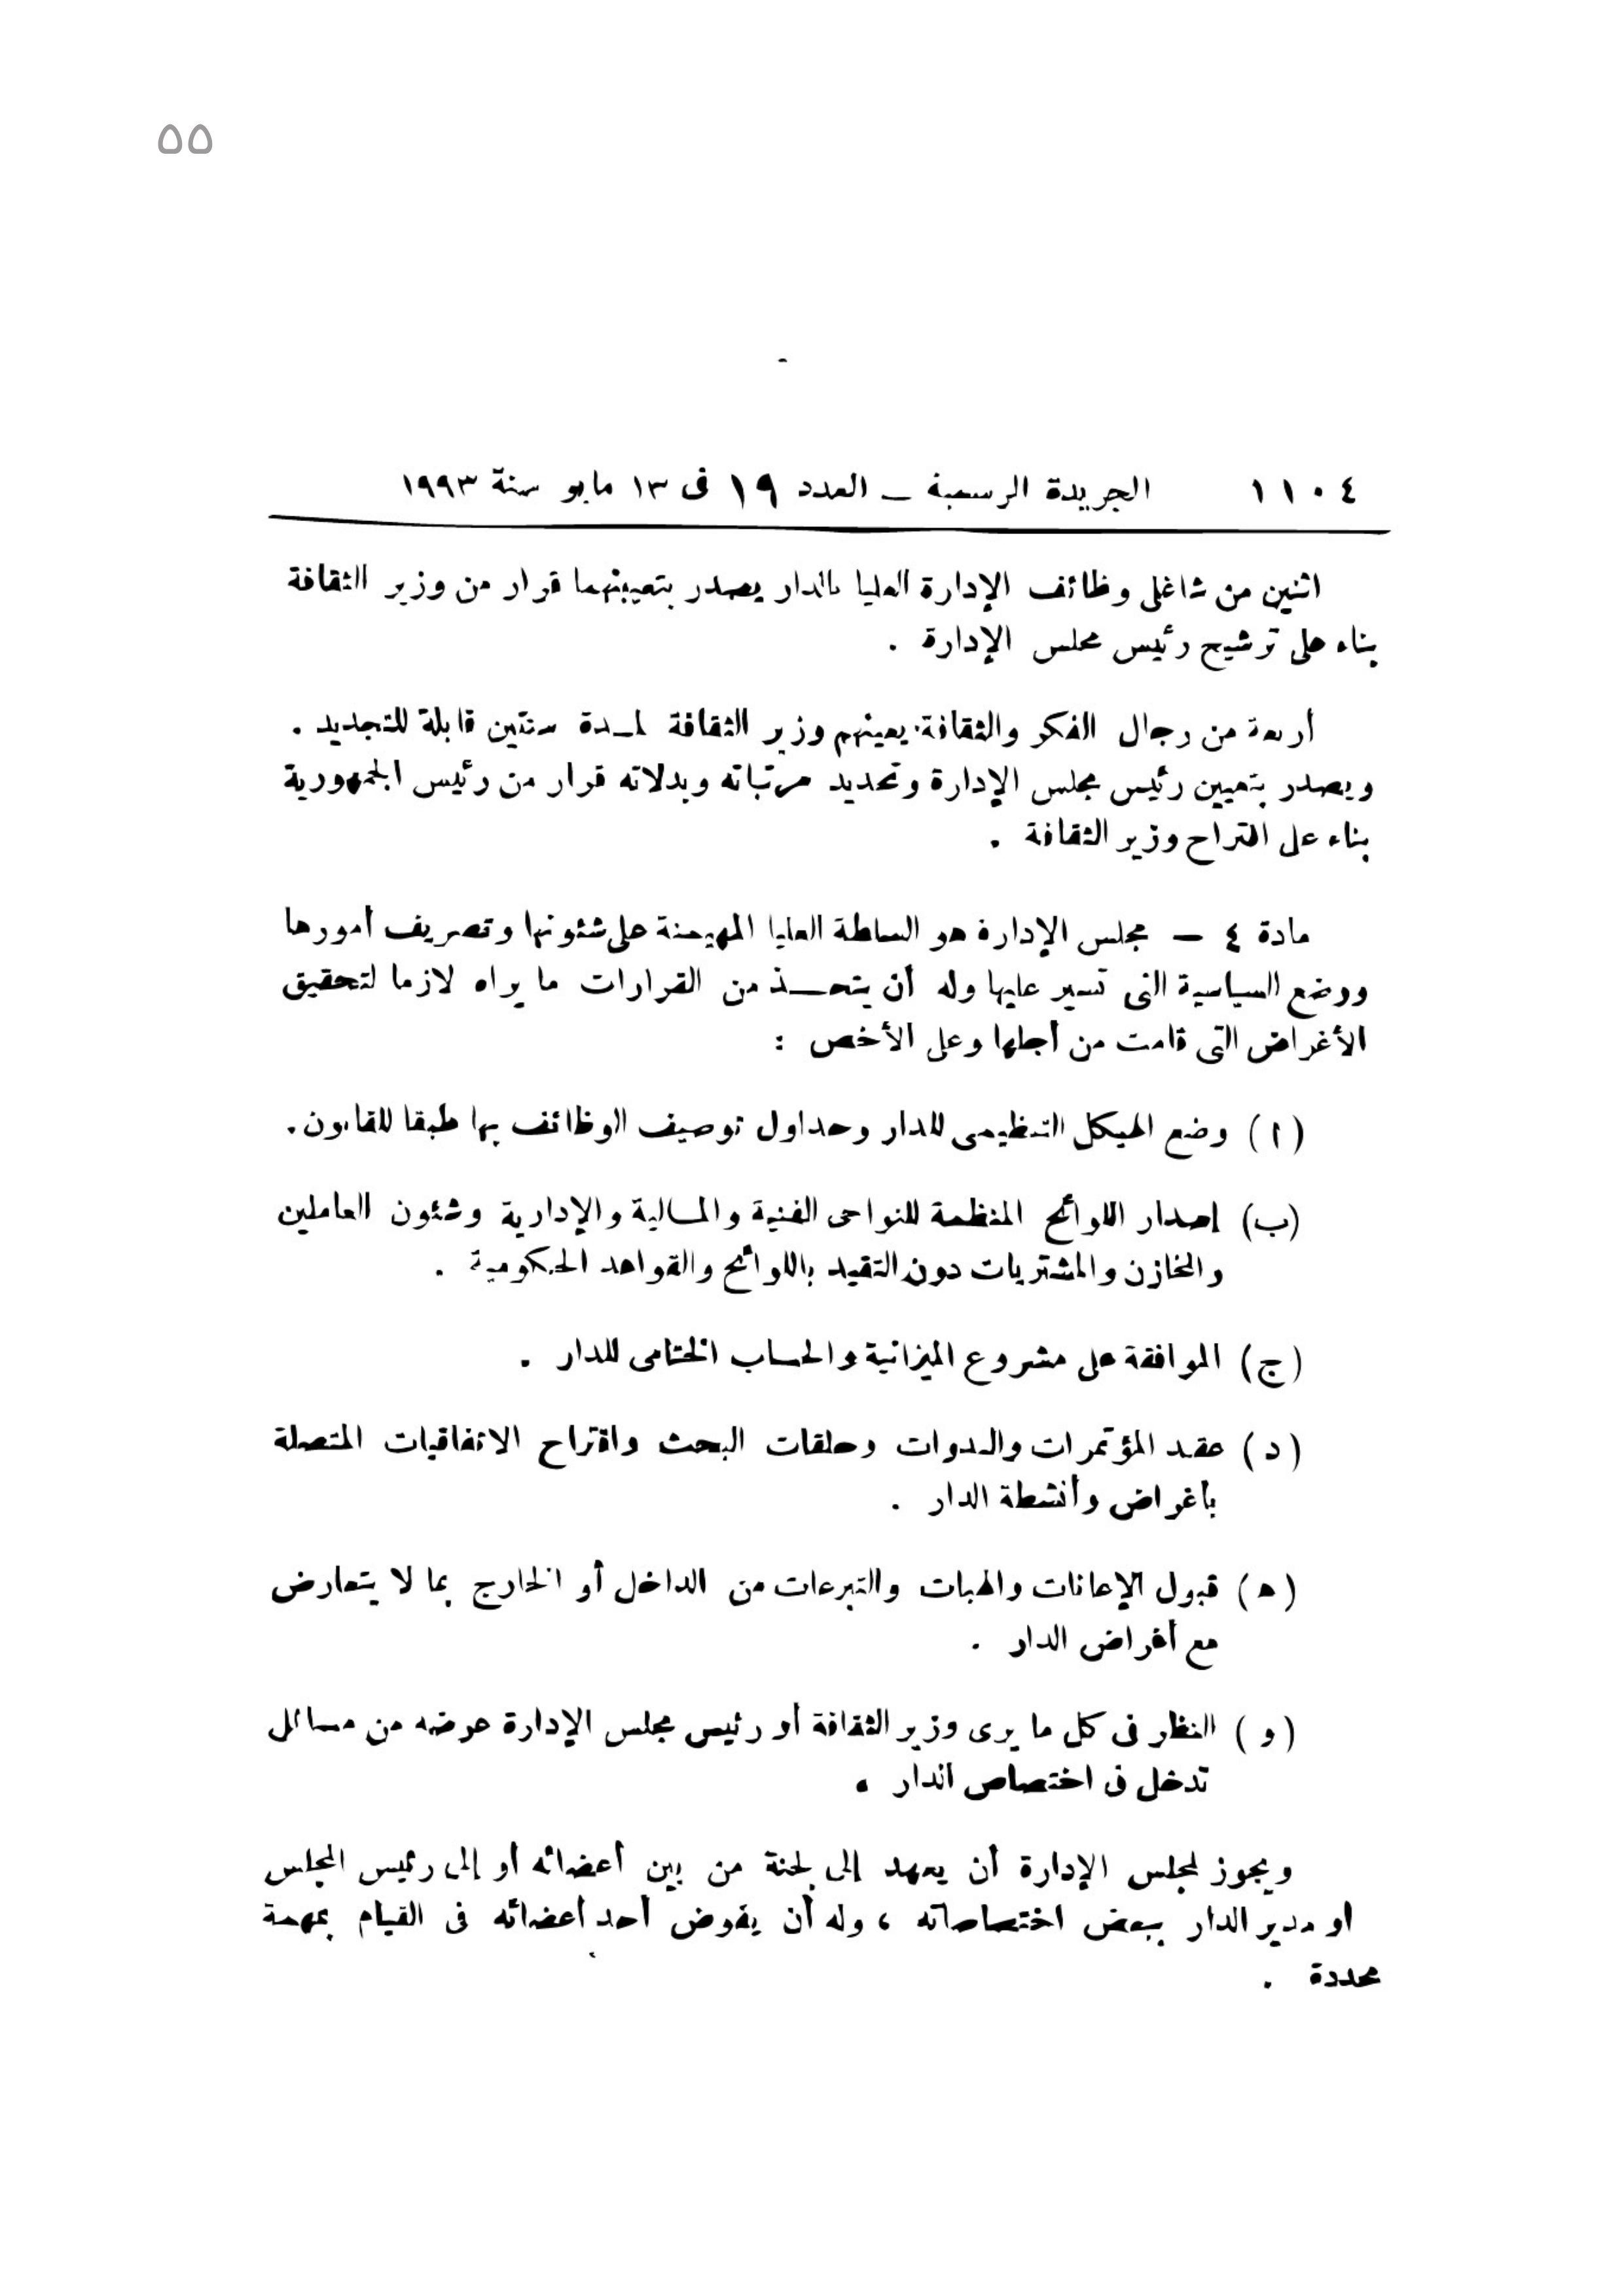 ٥٥
١١٠٤ الجريدة الرسمية – العدد ١٩ فى ١٣ مايو سنة ١٩٩٣
اثنين من شاغلى وظائف الإدارة العليا بالدار يصدر بتعيينهما قرار من وزير الثقافة
بناء على ترشيح رئيس مجلس الإدارة .
أربعة من رجال الفكر والثقافة يعينهم وزير الثقافة لمـدة سنتين قابلة للتجديد .
ويصدر بتعيين رئيس مجلس الإدارة وتحديد مرتباته وبدلاته قرار من رئيس الجمهورية
بناء على اقتراح وزير الثقافة .
مادة ٤ – مجلس الإدارة هو السلطة العليا المهيمنة على شئونها وتصريف أمورها
ووضع السياسية التى تسير عليها وله أن يتخـــذ من القرارات ما يراه لازما لتحقيق
الأغراض التى قامت من أجلها وعلى الأخص :
(ا) وضع الهيكل التنظيمى للدار وجداول توصيف الوظائف بها طبقا للقانون .
(ب) إصدار اللوائح المنظمة للنواحى الفنية والمـالية والإدارية وشئون العاملين
والمخازن والمشتريات دون التقيد باللوائح والقواعد الحكومية .
(ج) الموافقة على مشروع الميزانية والحساب الختامى للدار .
(د) عقد المؤتمرات والندوات وحلقات البحث واقتراح الاتفاقيات المتصلة
بأغراض وأنشطة الدار .
(ه) قبول الإعانات والهبات والتبرعات من الداخل أو الخارج بما لا يتعارض
مع أغراض الدار .
(و) النظر فى كل ما يرى وزير الثقافة أو رئيس مجلس الإدارة عرضه من مسائل
تدخل فى اختصاص الدار .
ويجوز لمجلس الإدارة أن يعهد إلى لجنة من بين أعضائه أو إلى رئيس المجلس
او مدير الدار ببعض اختصاصاته ، وله أن يفوض أحد أعضائه فى القيام بمهمة
محددة .